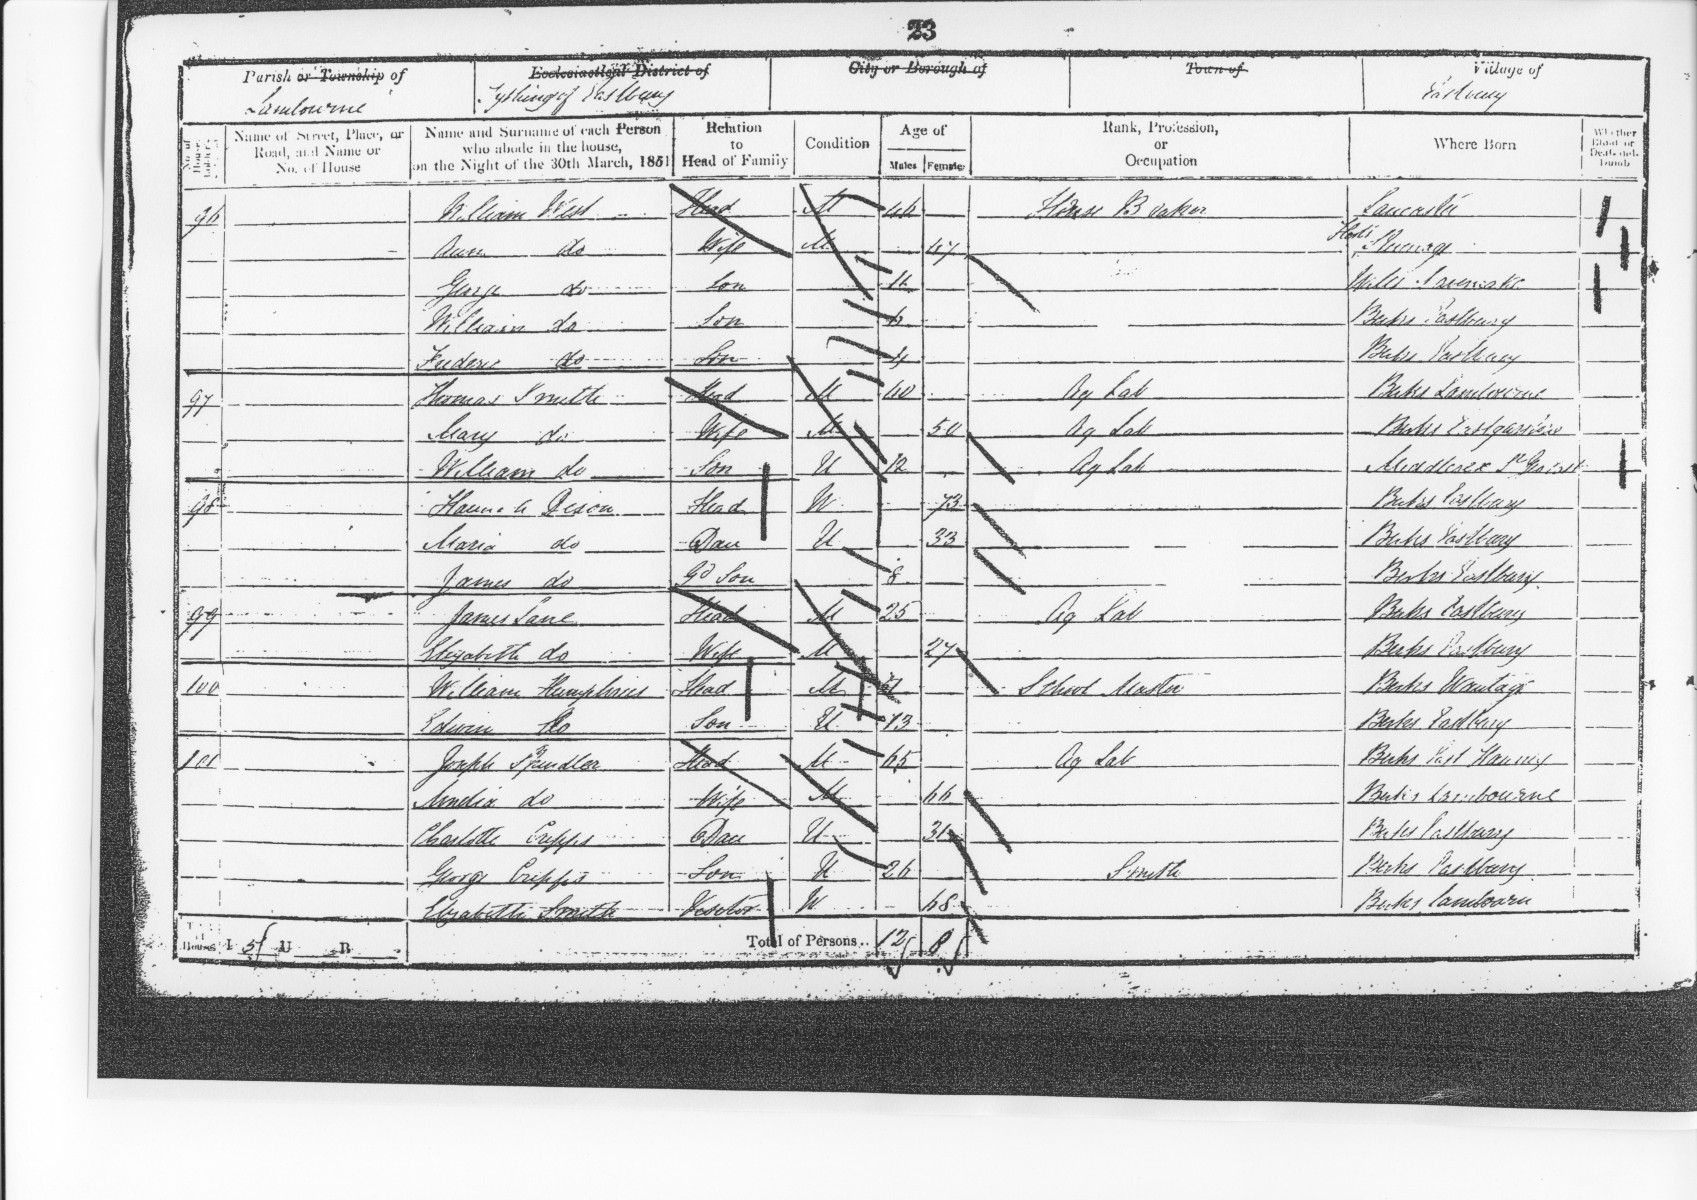 23
Parish or Township of
Ecclesiastical District of
City or Borough of
Town of
Village of
Lambourne
Tything of Eastbury
Eastbury
Name of Street, Place, or Road, and Name or No. of House
Name and Surname of each Person who abode in the house, on the Night of the 30th March, 1851
Relation to Head of Family
Condition
Age of
Males Females
Rank, Profession, or Occupation
Where Born
Whether Blind or Deaf-and-Dumb
96 William West Head M House Lancaster
Ann do Wife M 47
George do Son Wilts
William do Son Berks Eastbury
Frederic do Son 4 Berks Eastbury
97 Thomas Smith Head M 40 Ag Lab Berks Lambourne
Mary do Wife M 50 Ag Lab Berks
William do Son U 12 Ag Lab Middlesex
98 Hannah Head W 73 Berks Eastbury
Maria do Dau U 33 Berks Eastbury
James do Gd Son 8 Berks Eastbury
99 James Lane Head M 25 Ag Lab Berks Eastbury
Elizabeth do Wife M 27 Berks Eastbury
100 William Humphries Head M School Master Berks Wantage
Edwin do Son U 13 Berks Eastbury
101 Joseph Spindler Head M 65 Ag Lab Berks East Hanney
do Wife M 66 Berks Lambourne
Charlotte Cripps Dau U 31 Berks Eastbury
George Cripps Son U 26 Smith Berks Eastbury
Elizabeth Smith Visitor W 68 Berks Lambourn
Houses I 5 U B Total of Persons.. 12 8